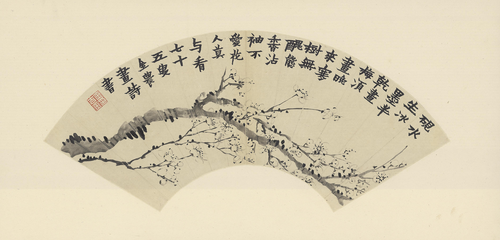 硯水
生冰
墨半
乾畫
梅須
畫晚
來寒
樹無
醜態
香沾
袖不
愛花
人莫
与看
七十
五叟
金農
畫詩
書